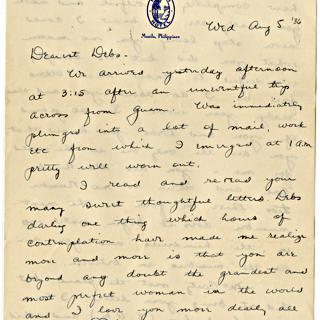 HOTEL
Manila, Philippines
Wed Aug 5 '36
Dearest Debs.
We arrived yesterday afternoon
at 3:15 after an uneventful trip
across from Guam. Was immediately
plunged into a lot of mail, work
etc from which I emerged at 1 am
pretty well worn out.
I read and re-read your
many sweet thoughtful letters Debs
darling one thing which hours of
contemplation have made me realize
more and more is that you are
beyond any doubt the grandest and
most perfect woman in the world
and I love you more dearly all